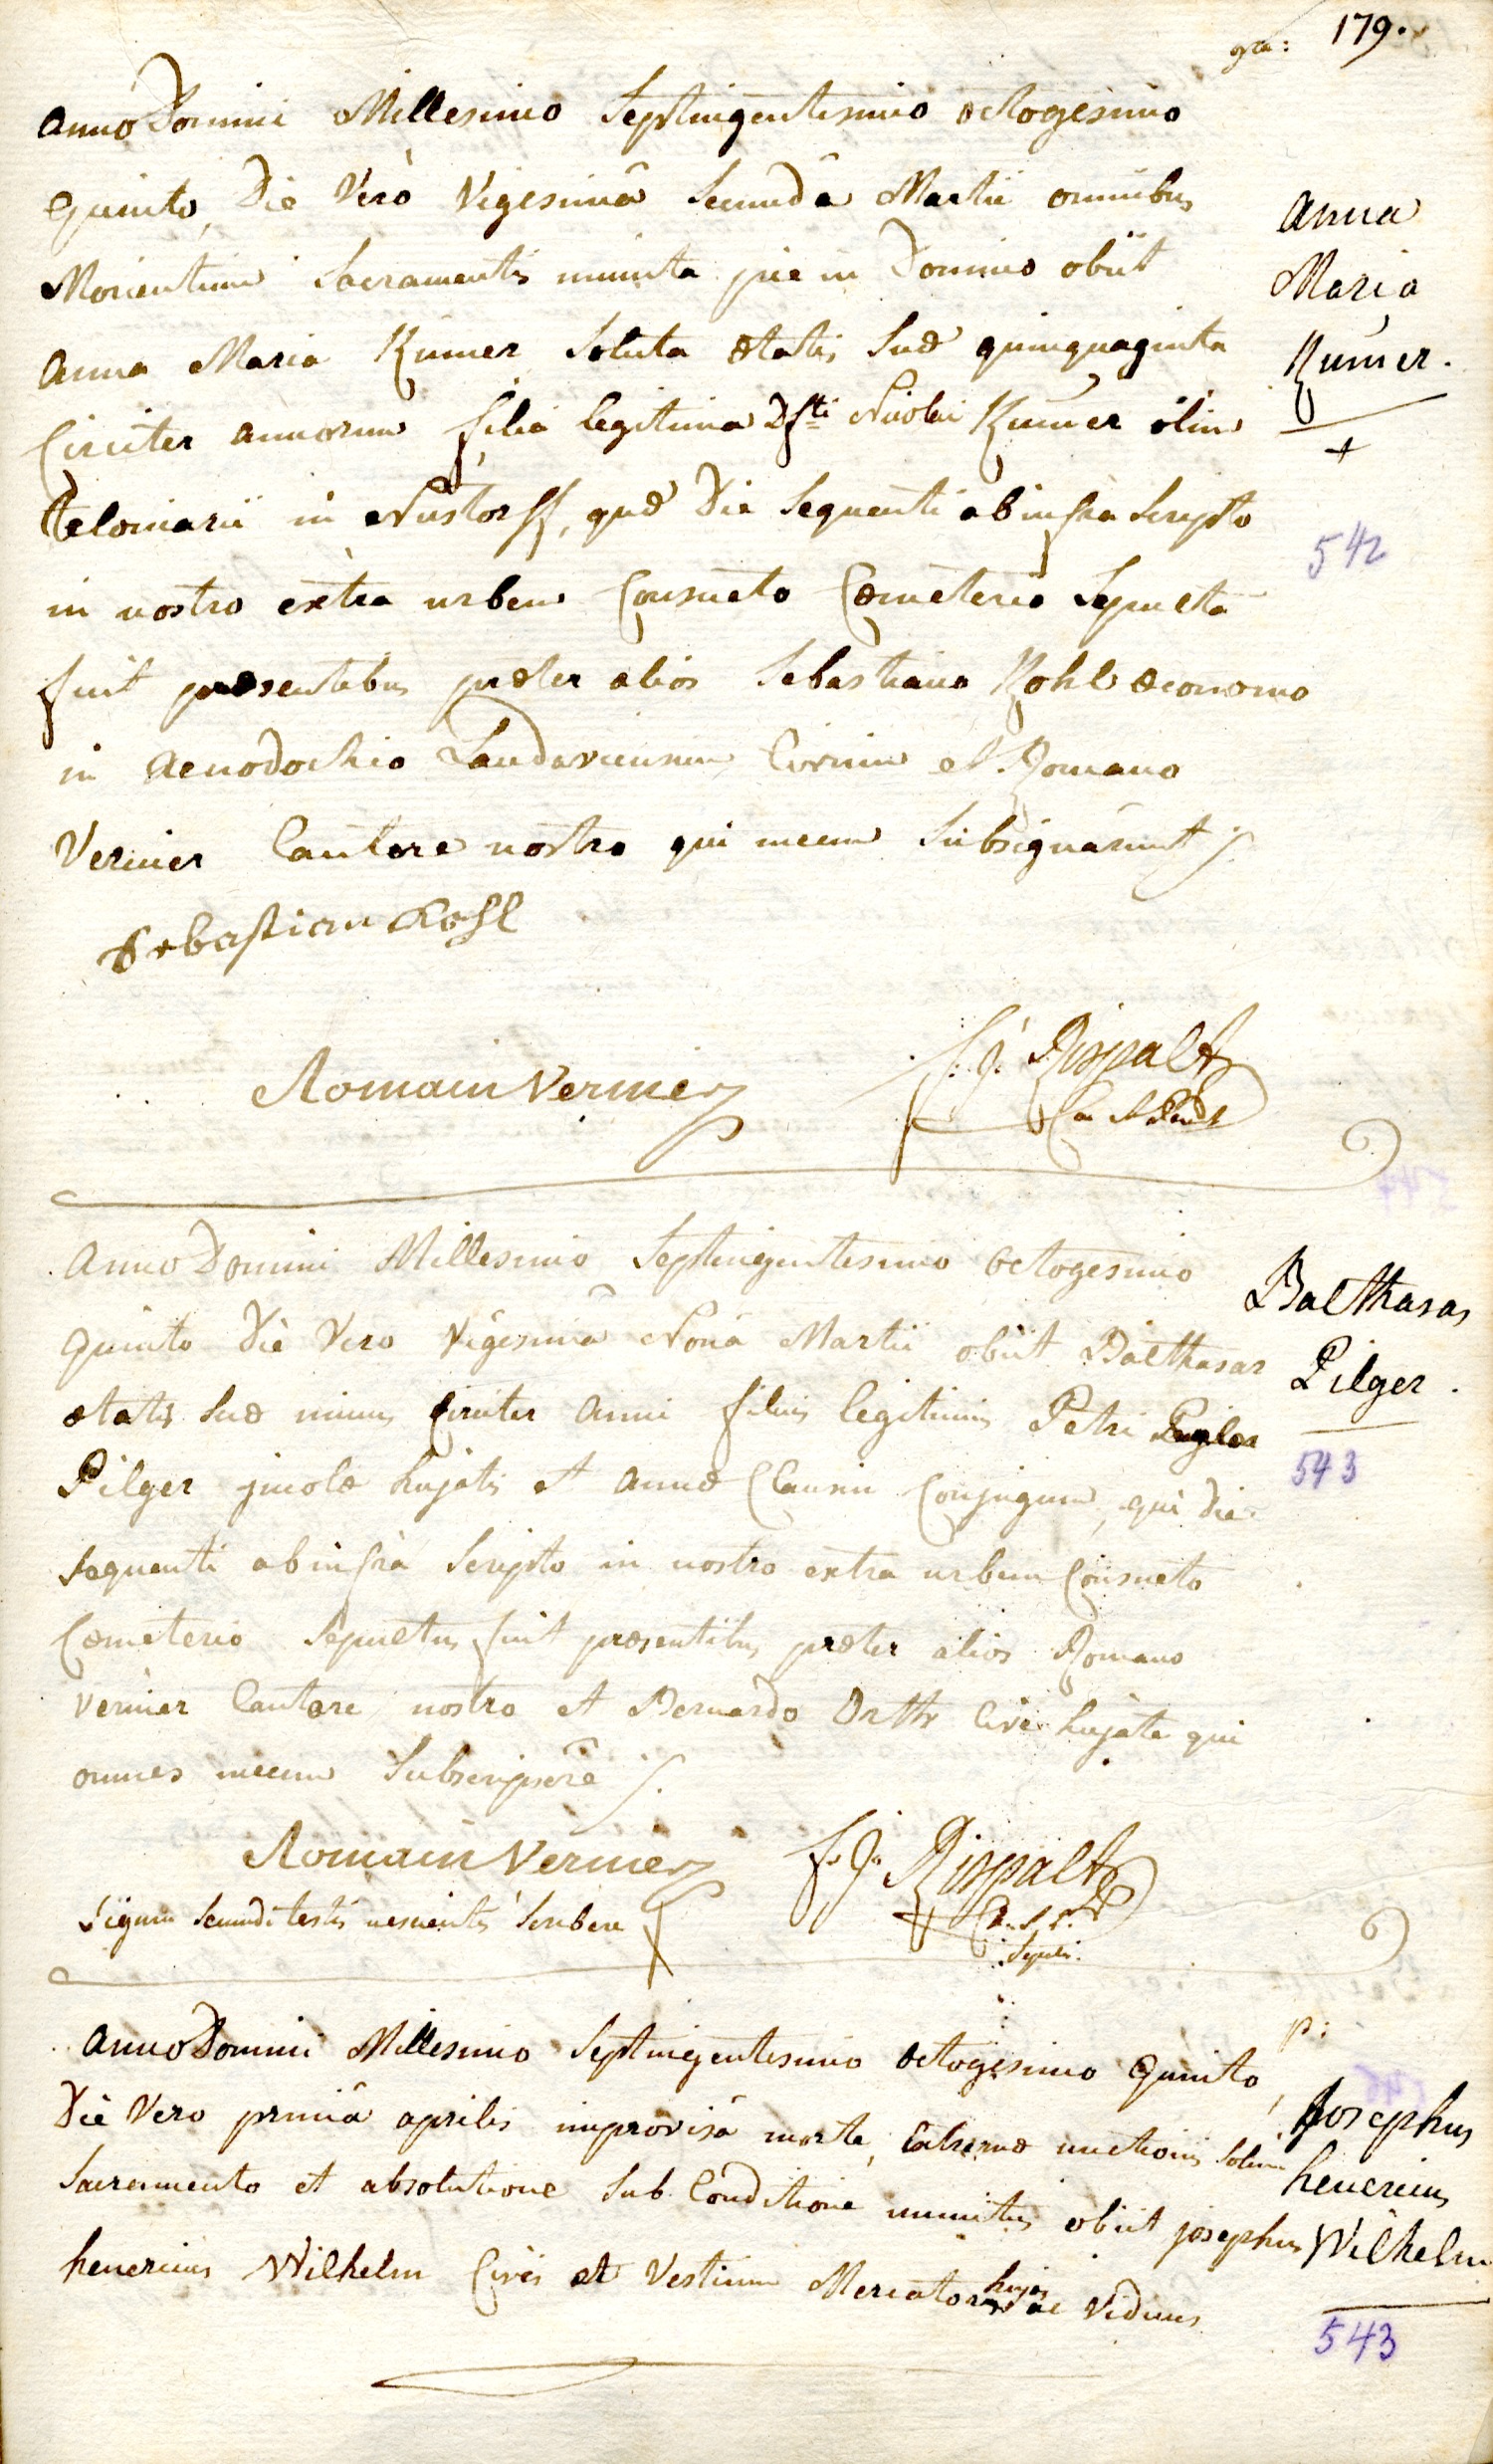 179.
gra:
Anno Domini Millesimo Septingentesimo octogesimo
quinto, Die Verò Vigesimâ Secundâ Martii omnibus
Morientium Sacramentis munita pie in Domino obiit
Anna Maria Kumer Soluta ætatis suæ quinquaginta
Circiter annorum filia legitima Dfti Nicolai Kumer olim
telonarii in Nustorff, quæ Die Sequenti ab infra Scripto
in nostro extra urbem Consueto Cœmeterio Sepulta
fuit præsentibus præter alios Sebastiano Kohl œconomo
in Xenodochio Landaviensium Civium et Romano
Vernier Cantore nostro qui mecum Subsignarunt
Anna
Maria
Kumer.
+
542
Sebastian Kohl
Romain Vernier
f. J. Rispalt
Anno Domini Millesimo Septingentesimo octogesimo
quinto Die Vero Vigesimâ Nonâ Martii obiit Balthasar
ætatis suæ unius Circiter anni filius legitimus Petri
Pilger incolæ hujatis et Annæ Claussin Conjugum, qui die
sequenti ab infrà Scripto in nostro extra urbem Consueto
Cœmeterio Sepultus fuit præsentibus præter alios Romano
Vernier Cantore nostro et Bernardo Orth Cive hujate qui
omnes mecum Subscripsere
Balthasar
Pilger.
543
Romain Vernier f. J. Rispalt
Signum Secundi testis nescientis Scribere +
Anno Domini Millesimo Septingentesimo octogesimo quinto,
Die Vero primâ aprilis improvisâ morte, Extremæ unctionis solum
Sacramento et absolutione Sub Conditione munitus obiit josephus
henericus Wilhelm Civis et Vestium Mercator hujas ac Viduus
p:
Josephus
henericus
Wilhelm
543